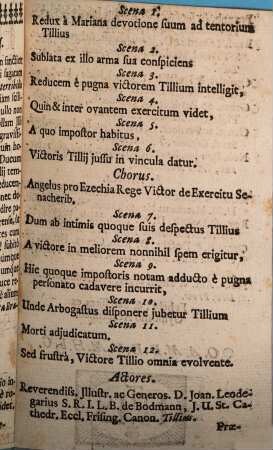 Scena 1.
Redux à Mariana devotione suum ad tentorium
Tillius
Scena 2.
Sublata ex illo arma sua conspiciens
Scena 3.
Reducem è pugna victorem Tillium intelligit,
Scena 4.
Quin & inter ovantem exercitum videt,
Scena 5.
A quo impostor habitus,
Scena 6.
Victoris Tillij jussu in vincula datur.
Chorus.
Angelus pro Ezechia Rege Victor de Exercitu Se-
nacherib.
Scena 7.
Dum ab intimis quoque suis despectus Tillius
Scena 8.
A victore in meliorem nonnihil spem erigitur,
Scena 9.
Hic quoque impostoris notam adducto è pugna
personato cadavere incurrit,
Scena 10.
Unde Arbogastus disponere jubetur Tillium
Scena 11.
Morti adjudicatum.
Scena 12.
Sed frustrà, Victore Tillio omnia evolvente.
Actores.
Reverendiss. Jllustr. ac Generos. D. Joan. Leode-
garius S. R. I. L. B. de Bodmann, J. U. St. Ca-
thedr. Eccl. Frising. Canon. Tillius.
Præ-